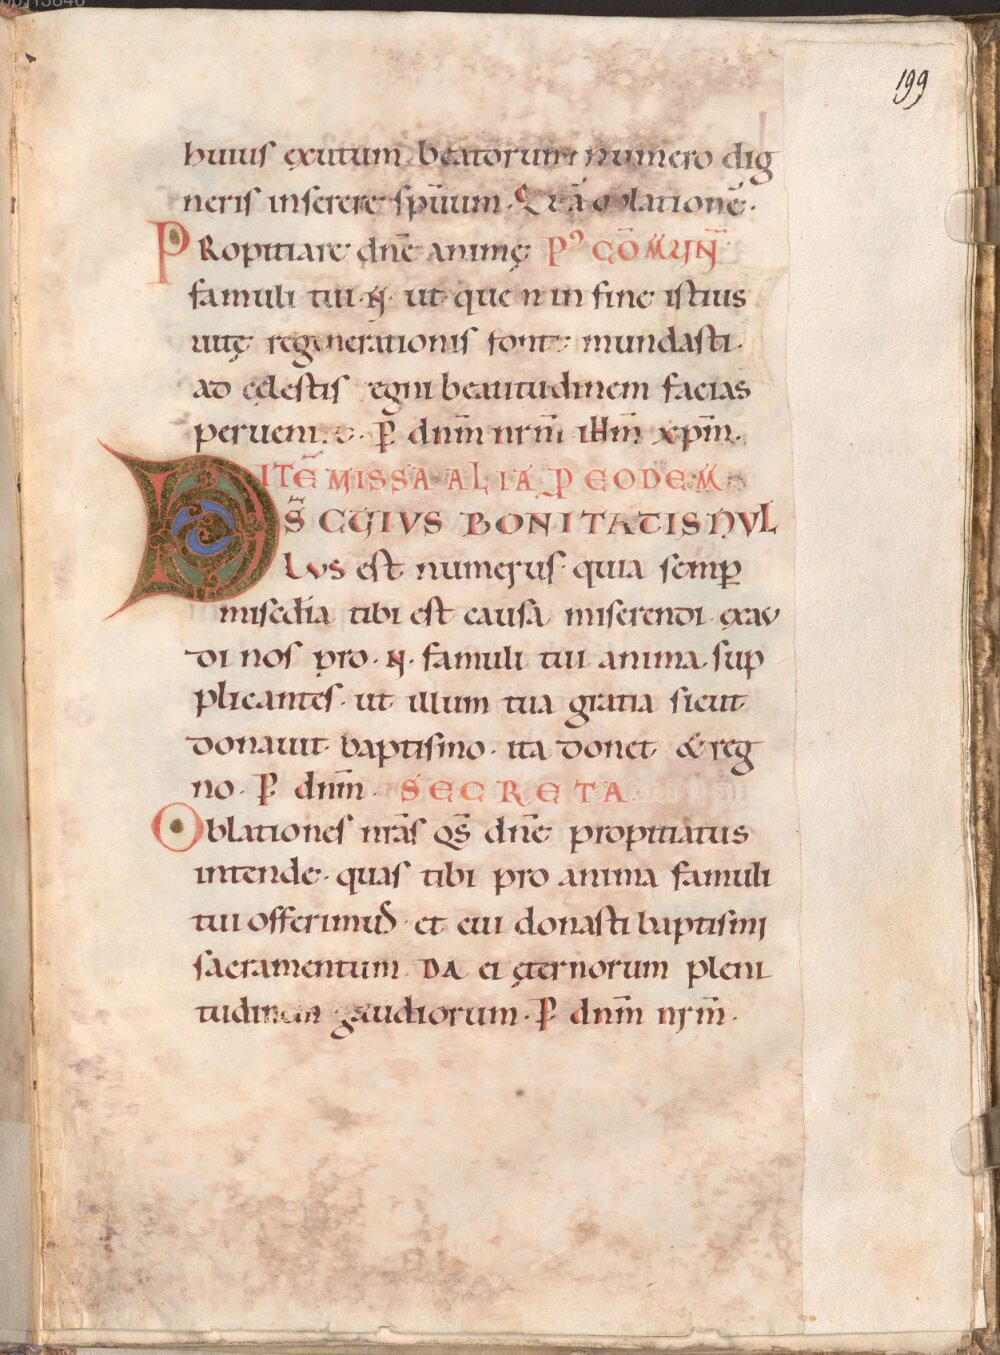 199
huius exutum beatorum numero dig
neris inserere sp̄iuum.
PRopitiare dn̄e animę P' CŌMUN̄
famuli tui .N. ut quem in fine istius
uitę regenerationis fonte mundasti.
ad cęlestis regni beatitudinem facias
peruenire. P̄ dn̄m nrm̄ iħm̄ xp̄m.
ITĒ MISSA ALIA P EODEM
DS̄ CUIUS BONITATIS NUL
LUS est numerus quia semp
misedia tibi est causa miserendi exau
di nos pro .N. famuli tui anima sup
plicantes. ut illum tua gratia sicut
donauit baptismo. ita donet & reg
no. P̄ dn̄m. SECRETA
Oblationes nrās qs̄ dn̄e propitiatus
intende. quas tibi pro anima famuli
tui offerimus. et cui donasti baptismi
sacramentum. DA ei ęternorum pleni
tudinem gaudiorum. P̄ dn̄m nrm̄.